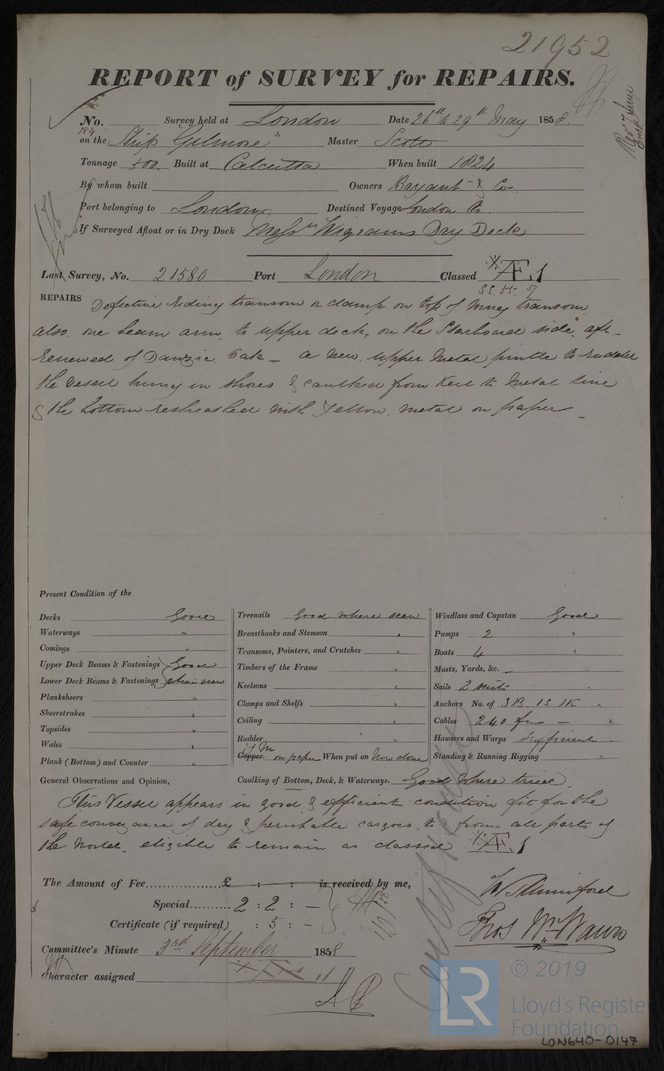 21952
REPORT of SURVEY for REPAIRS.
No. 184 Survey held at London Date 26th & 29th May 1858
on the Ship "Gilmore" Master Scott
Tonnage 500 Built at Calcutta When built 1824
By whom built Owners Bryant & Co
Port belonging to London Destined Voyage London
If Surveyed Afloat or in Dry Dock Messrs Wigrams Dry Dock
Last Survey, No. 21580 Port London Classed Æ 1
REPAIRS Defective riding transom or clamp on top of wing transom
also one beam arm to upper deck, on the Starboard side aft
renewed of Danzic Oak - a new upper metal pintle to rudder
the vessel hung in shores & caulked from Keel to Metal line
& the bottom resheathed with Yellow metal on paper
Present Condition of the
Decks Good
Waterways "
Comings "
Upper Deck Beams & Fastenings Good
Lower Deck Beams & Fastenings where seen
Planksheers "
Sheerstrakes "
Topsides "
Wales "
Plank (Bottom) and Counter "
Treenails Good where seen
Breasthooks and Stemson "
Transoms, Pointers, and Crutches "
Timbers of the Frame "
Keelsons "
Clamps and Shelfs "
Ceiling "
Rudder "
Copper Y M on paper When put on Now done
Windlass and Capstan Good
Pumps 2 "
Boats 4 "
Masts, Yards, &c. "
Sails 2 suits
Anchors No. of 3 B 1 S 1 K "
Cables 240 fms "
Hawsers and Warps Sufficient
Standing & Running Rigging "
General Observations and Opinion, Caulking of Bottom, Deck, & Waterways. Good where tried
This Vessel appears in good & efficient condition fit for the
safe conveyance of dry & perishable cargoes to & from all parts of
the World, eligible to remain as classed Æ 1
The Amount of Fee £ : : is received by me,
Special 2 : 2 : -
Certificate (if required) : 5 : -
Committee's Minute 3rd September 1858
Character assigned Æ 1
© 2019
Lloyd's Register
Foundation
LR
LON640-0147